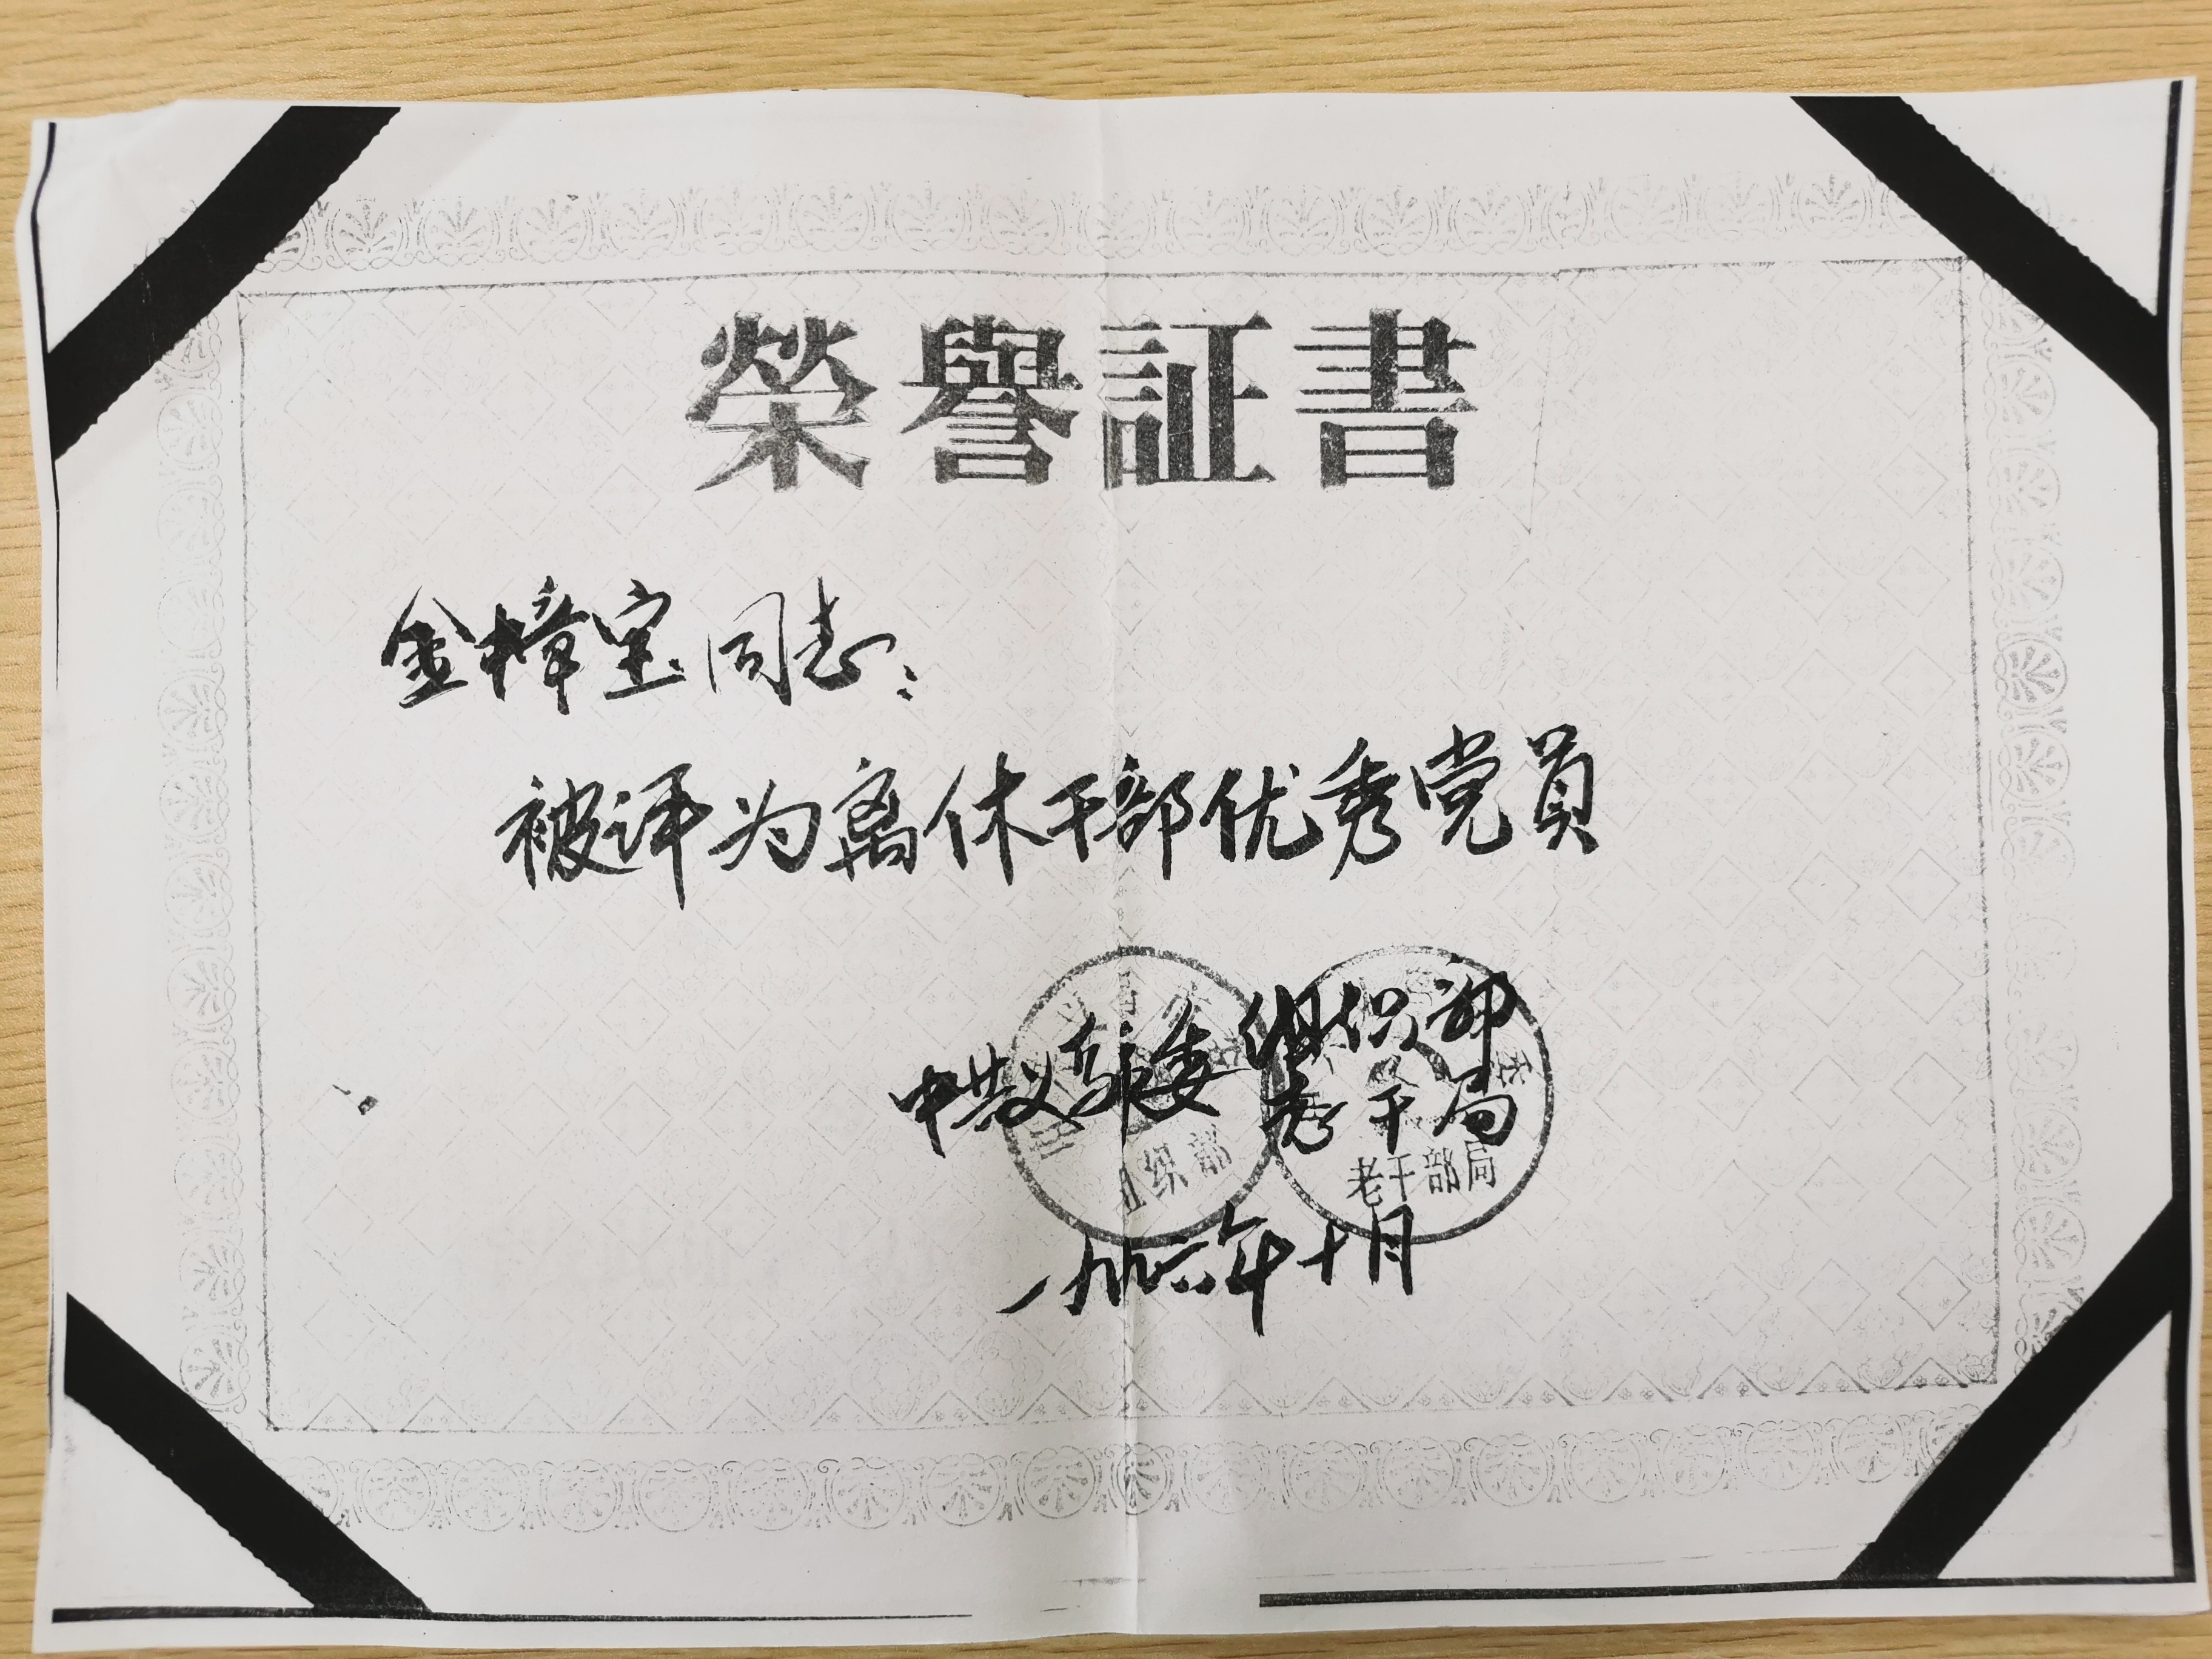 榮譽証書
金樟宝同志：
被评为离休干部优秀党员
中共义乌市委组织部
老干局
织部
老干部局
一九九六年十月